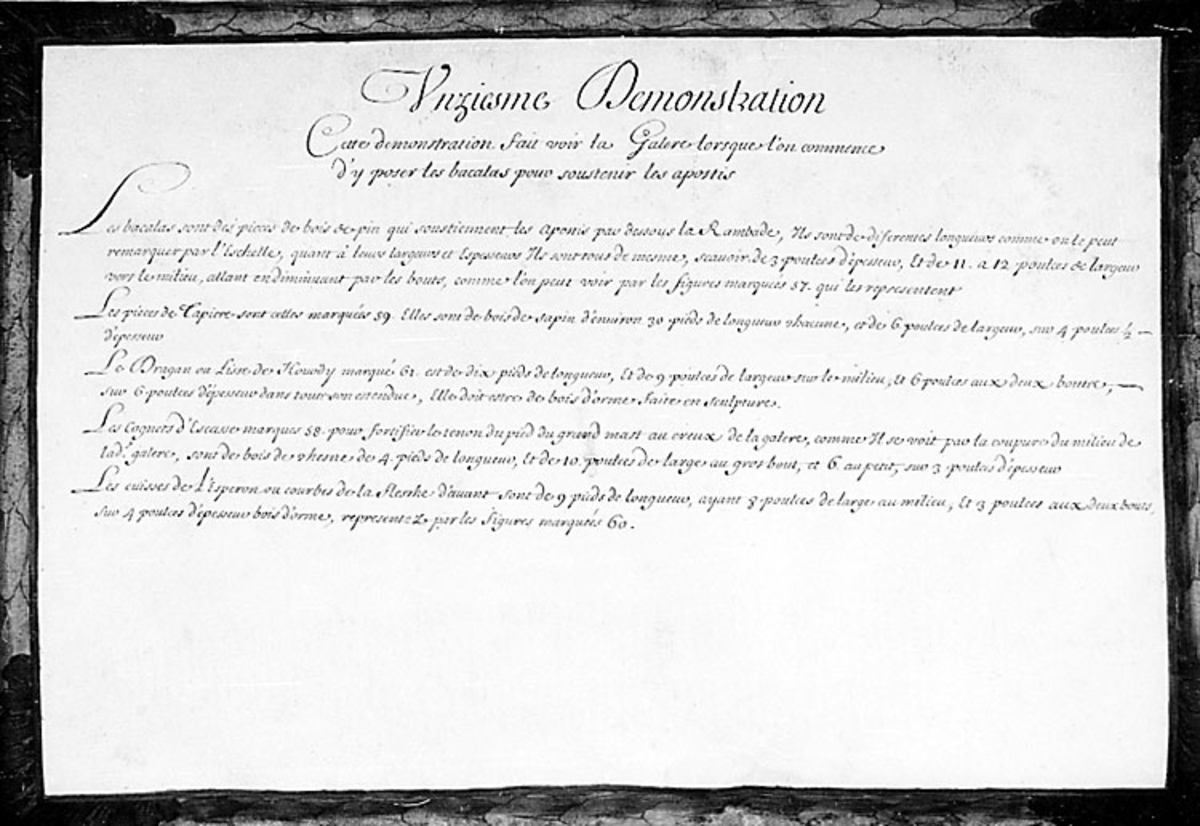 Vnziesme Demonstration
Cette demonstration fait voir la Galere lorsque l'on commence
d'y poser les bacalas pour soustenir les apostis
Les bacalas sont des pieces de bois de pin qui soustiennent les Apostis par dessous la Rambade, Ils sont de diferentes longueurs comme on le peut
remarquer par l'Eschelle, quant à leurs largeurs et Espesseurs Ils sont tous de mesme, scavoir de 3 poulces d'épesseur, Et de 11. a 12 poulces de largeur
vers le milieu, allant en diminuant par les bouts, comme l'on peut voir par les figures marqués 57. qui les representent
Les pieces de Tapiere sont celles marquées 59. Elles sont de bois de sapin d'environ 30 pieds de longueur chacune, et de 6 poulces de largeur, sur 4 poulces ½
d'épesseur
Le Dragan ou Lisse de marqué 61. est de dix pieds de longueur, Et de 9 poulces de largeur sur le milieu, et 6 poulces aux deux boutre,
sur 6 poulces d'épesseur dans toutte son estendue, Elle doit estre de bois d'orme faite en sculpture.
Les Cognets d'Escasse marques 58. pour fortifier le tenon du pied du grand mast au creux de la galere, comme Il se voit par la coupure du milieu de
lad.e galere, sont de bois de chesne de 4. pieds de longueur, Et de 10. poulces de large au gros bout, et 6 au petit, sur 3 poulces d'épesseur
Les cuisses de l'Esperon ou courbes de la flesche d'avant sont de 9 pieds de longueur, ayant 8 poulces de large au milieu, Et 3 poulces aux deux bouts,
sur 4 poulces d'épesseur bois d'orme, representez par les figures marqués 60.